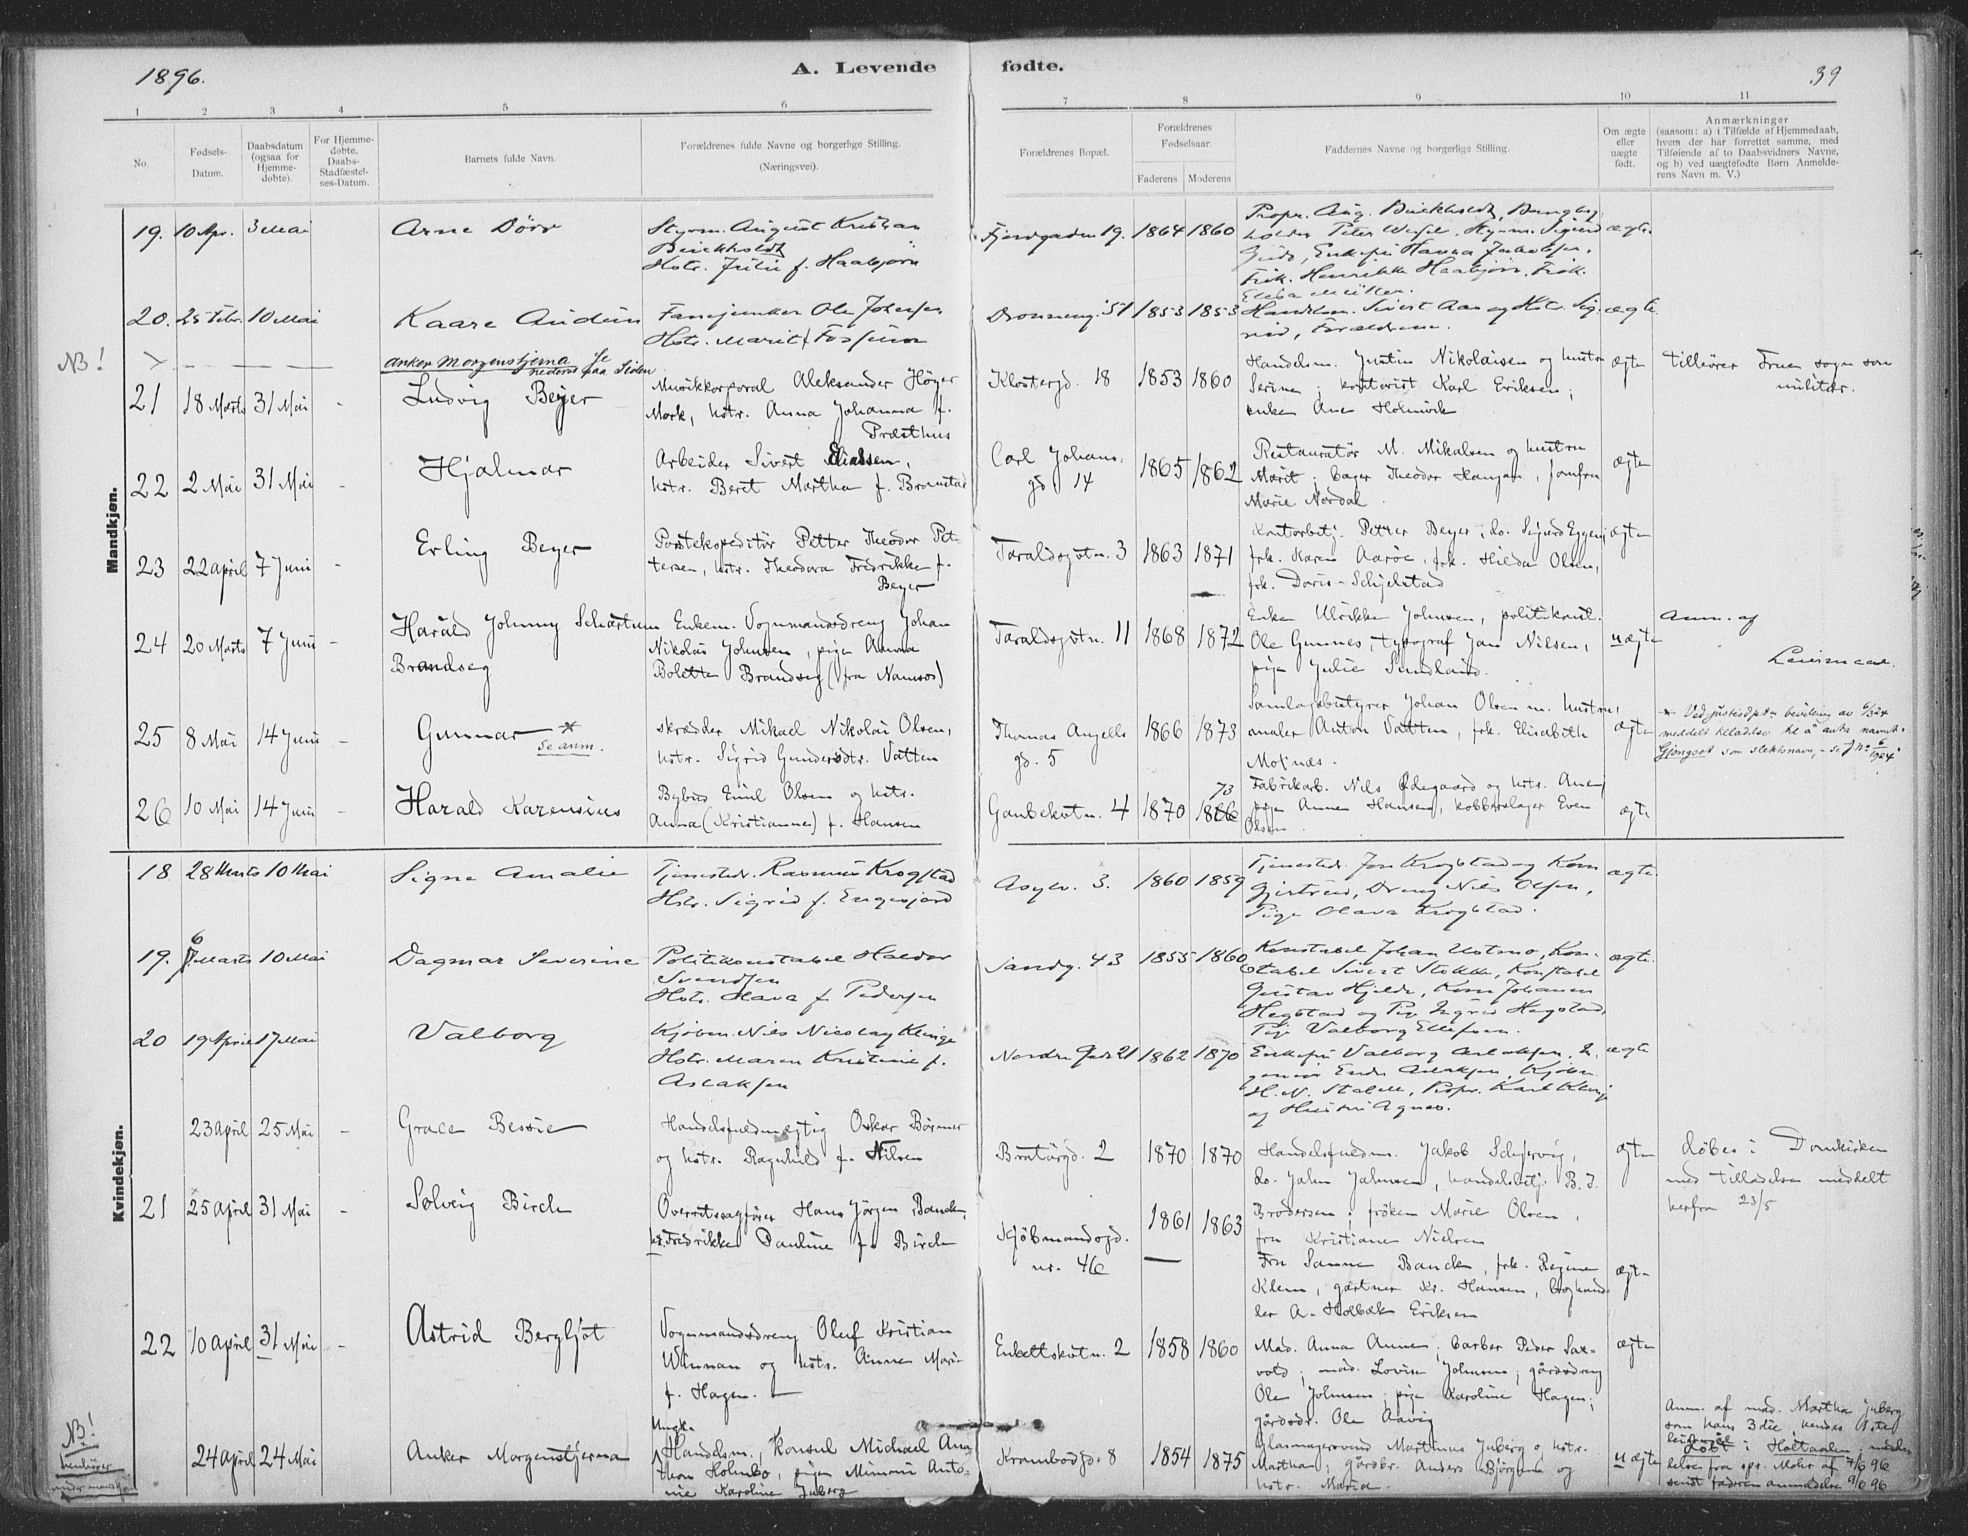 1896.
A. Levende fødte.
39
1 2 3 4 5 6 7 8 9 10 11
No.
Fødsels-Datum.
Daabsdatum (ogsaa for Hjemme-døbte).
For Hjemme-døbte. Daabs-Stadfæstel-ses-Datum.
Barnets fulde Navn.
Forældrenes fulde Navne og borgerlige Stilling.
(Næringsvei).
Forældrenes Bopæl.
Forældrenes Fødselsaar.
Faderens Moderens
Faddernes Navne og borgerlige Stilling.
Om ægte eller uægte født.
Anmærkninger
(saasom: a) i Tilfælde af Hjemmedaab,
hvem der har forrettet samme, med
Tilføiende af to Daabsvidners Navne,
og b) ved uægtefødte Børn Anmelde-
rens Navn m. V.)
Mandkjøn.
19. 10 Apr. 3 Mai Arne Dörr
Styrm. August Kristian
Hstr. Julie f. Haabjörn
Fjordgaden 19. 1864 1860
Enkefru Hanna Jakobsen,
Frk. Henrikke Haabjörn, Frk.
ægte.
20. 25 Febr. 10 Mai Kaare Audun
Fanejunker Ole Johnsen
Hstr. Marit f.
Dronning. 51 1853 1853
Handelsm. Sivert Aas og Hstr. Sig-
rid, Forældrene.
ægte
NB!
Anker Morgenstjerna Se
nederst paa Siden
21 18 Marts 31 Mai - Ludvig Beyer
Musikkorporal Aleksander Höyer
Mork, hstr. Anna Johanna f.
Præsthus
Klostergd. 18 1853 1860
Handelsm. Justin Nikolaisen og hustru
Serine; kontorist Karl Eriksen;
enken Ane Holmvik
ægte
Tilhörer Frue sogn som
militær.
22 2 Mai 31 Mai - Hjalmar
Arbeider Sivert Eliassen,
hstr. Beret Martha f. Bromstad
Carl Johans
gd. 14 1865 1862
Restauratör M. Mikalsen og hustru
Marit; bager Theodor Hangan, jomfru
Marie Nordal
ægte
23 22 april 7 Juni - Erling Beyer
Postekspeditör Petter Theodor Pet-
tersen, hstr. Theodora Fredrikke f.
Beyer
Taraldsgvtn. 3 1863 1871
Kontorbetj. Petter Beyer, do. Sigurd Eggen,
frk. Karen Aaröe, frk. Hilda Olsen,
frk. Doris Schjelstad
ægte
24 20 Marts 7 Juni - Harald Johnny Schartum
Brandseg
Enkem. Vognmandsdreng Johan
Nikolai Johnsen, pige Anna
Bolette Brandseg (fra Namsos)
Taraldsgvtn. 11 1868 1872
Enken Ulrikke Johnsen, politikonst.
Ole Gunnes, typograf Jans Nilsen,
pige Julie Sundland.
uægte
Anm. af
Leiermaal.
25 8 Mai 14 Juni - Gunnar *
Se anm.
skrædder Mikael Nikolai Olsen,
hstr. Sigrid Gundersdtr. Vatten
Thomas Angells
gd. 5 1866 1873
Samlagsbestyrer Johan Olsen m. hustru,
maler Anton Vatten, frk. Elisabeth
Molnæs.
ægte
* Ved justisdpt. bevilling av 6/3 24
meddelt tilladelse til å anta navnet
Gjengset som slektsnavn, - se J No 6/1924
26 10 Mai 14 Juni - Harald Karensius
Bybud Emil Olsen og hstr.
Anna (Kristianne) f. Hansen
Gaubekvtn. 4 1870 73 1866
Fabrikarb. Nils Ødegaard og hstr. Ane,
pige Anne Hansen, kobberslager Even
Olsen.
ægte
Kvindekjøn.
18 28 Marts 10 Mai Signe Amalie
Tjenestedr. Rasmus Krogstad
Hstr. Sigrid f. Engesjord
Asylv. 3. 1860 1859
Tjenestedr. Jon Krogstad og Kone
Gjertrud, Dreng Nils Olsen,
Pige Olava Krogstad.
ægte.
19. 6 7 Marts 10 Mai Dagmar Severine
Politikonstabel Haldor
Svendsen
Hstr. Olava f. Pedersen
Sandg. 43 1855 1860
Konstabel Johan Ustmo, Kon-
stabel Sivert Stokke, Konstabel
Gustav Hjelde, Kone Johanna
Hegstad og Pige Ingrid Hegstad,
Pige Valborg Ellefsen.
ægte.
20 19 April 17 Mai Valborg
Kjöbm. Nils Nicolay Klinge
Hstr. Maren Kristine f.
Aslaksen
Nordre Gade 21 1862 1870
Enkefru Valborg Aslaksen,
H. N. Stabell, Propr. Karl Klinge
og Hustru Agnes.
ægte
23 april 25 Mai - Grace Bessie
Handelsfuldmegtig Oskar Börmer
og hstr. Ragnhild f. Nilsen
Bratörgd. 2 1870 1870
Handelsfuldm. Jakob Schjervig,
do. John Johnsen, handelsbetj. B. J.
Brodersen; fröken Marie Olsen,
fru Kristiane Nielsen
ægte
döbes i Domkirken
med tilladelse meddelt
herfra 23/5
21 25 april 31 Mai - Solveig Birch
Overretssagförer Hans Jörgen Banck,
hstr. Fredrikke Pauline f. Birch
Kjöbmandsgd.
nr. 46 1861 1863
Fru Sanne Banck, frk. Regine
Klem, gartner Kr. Hansen, boghand-
ler A. Holbæk Eriksen
ægte
22 10 april 31 Mai - Astrid Bergljot
Vognmandsdreng Oluf Kristian
Winnan og hstr. Anne Marie
f. Hagen.
Enkeltskvtn. 2 1858 1860
Mad. Anna Aune; barber Peder Sax-
vold; mad. Lovise Johnsen; gårdsdreng
Ole Johnsen; pige Karoline Hagen;
gårdsdr. Ole Aavig
ægte
NB!
henhörer
under mandkjön
24 april 24 Mai Anker Morgenstjerna
Ungk.
Handelsm., Konsul Michael Ana-
thon Holmbo, pigen Mimmi Anto-
nie Karoline Juberg
Krambodgd. 8 1854 1875
Glasmagersvend Martinus Juberg o. hstr.
Martha; gårdbr. Anders Björgum og
hstr. Maria.
uægte
Anm. af mad. Martha Juberg
som hans 3die, hendes 1ste
leiermaal
Döbt i Holtaalen, meddelelse fra spr. Mohr af 7/6 96
sendt faderen anmeldelse 9/6 96